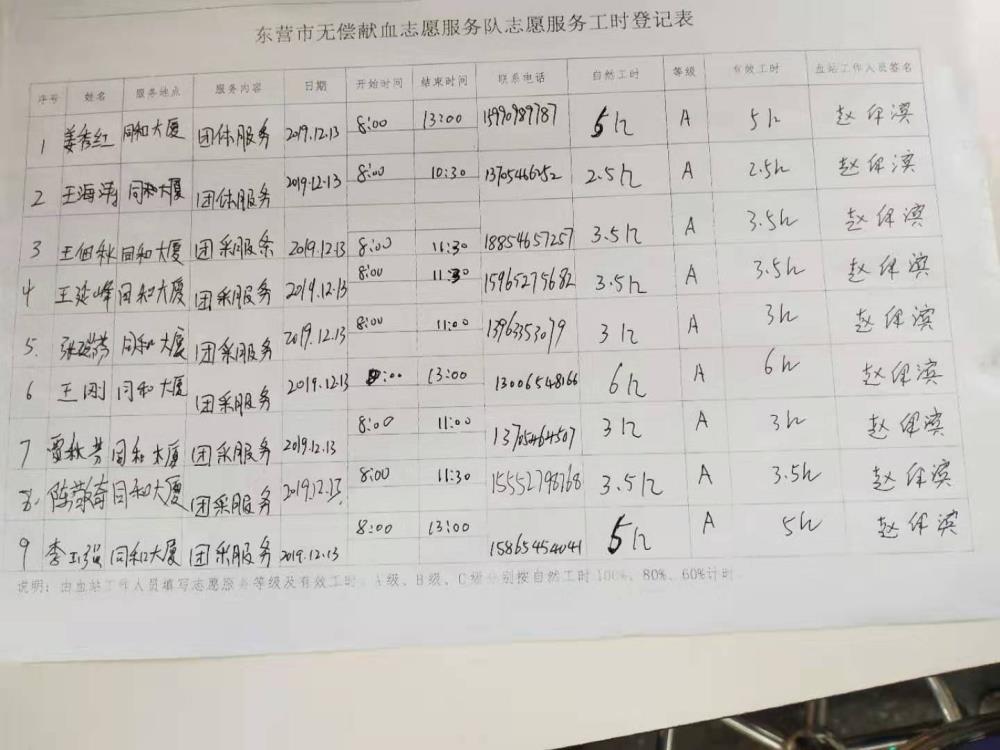 东营市无偿献血志愿服务队志愿服务工时登记表
序号 姓名 服务地点 服务内容 日期 开始时间 结束时间 联系电话 自然工时 等级 有效工时 血站工作人员签名
1 姜秀红 同和大厦 团体服务 2019.12.13 8:00 13:00 15990989787 5h A 5h 赵保滨
2 王海洋 同和大厦 团体服务 2019.12.13 8:00 10:30 13705466252 2.5h A 2.5h 赵保滨
3 王佃秋 同和大厦 团采服务 2019.12.13 8:00 11:30 18854657257 3.5h A 3.5h 赵保滨
4 王延峰 同和大厦 团采服务 2019.12.13 8:00 11:30 15965275682 3.5h A 3.5h 赵保滨
5. 同和大厦 团采服务 2019.12.13 8:00 11:00 13963353079 3h A 3h 赵保滨
6 王刚 同和大厦 团采服务 2019.12.13 :00 13:00 13006548166 6h A 6h 赵保滨
7 贾秋芳 同和大厦 团采服务 2019.12.13 8:00 11:00 13705464507 3h A 3h 赵保滨
8. 陈荣奇 同和大厦 团采服务 2019.12.13 8:00 11:30 15552798768 3.5h A 3.5h 赵保滨
9 李玉强 同和大厦 团采服务 2019.12.13 8:00 13:00 15865454041 5h A 5h 赵保滨
说明：由血站工作人员填写志愿服务等级及有效工时。A级、B级、C级分别按自然工时100%、80%、60%计时。